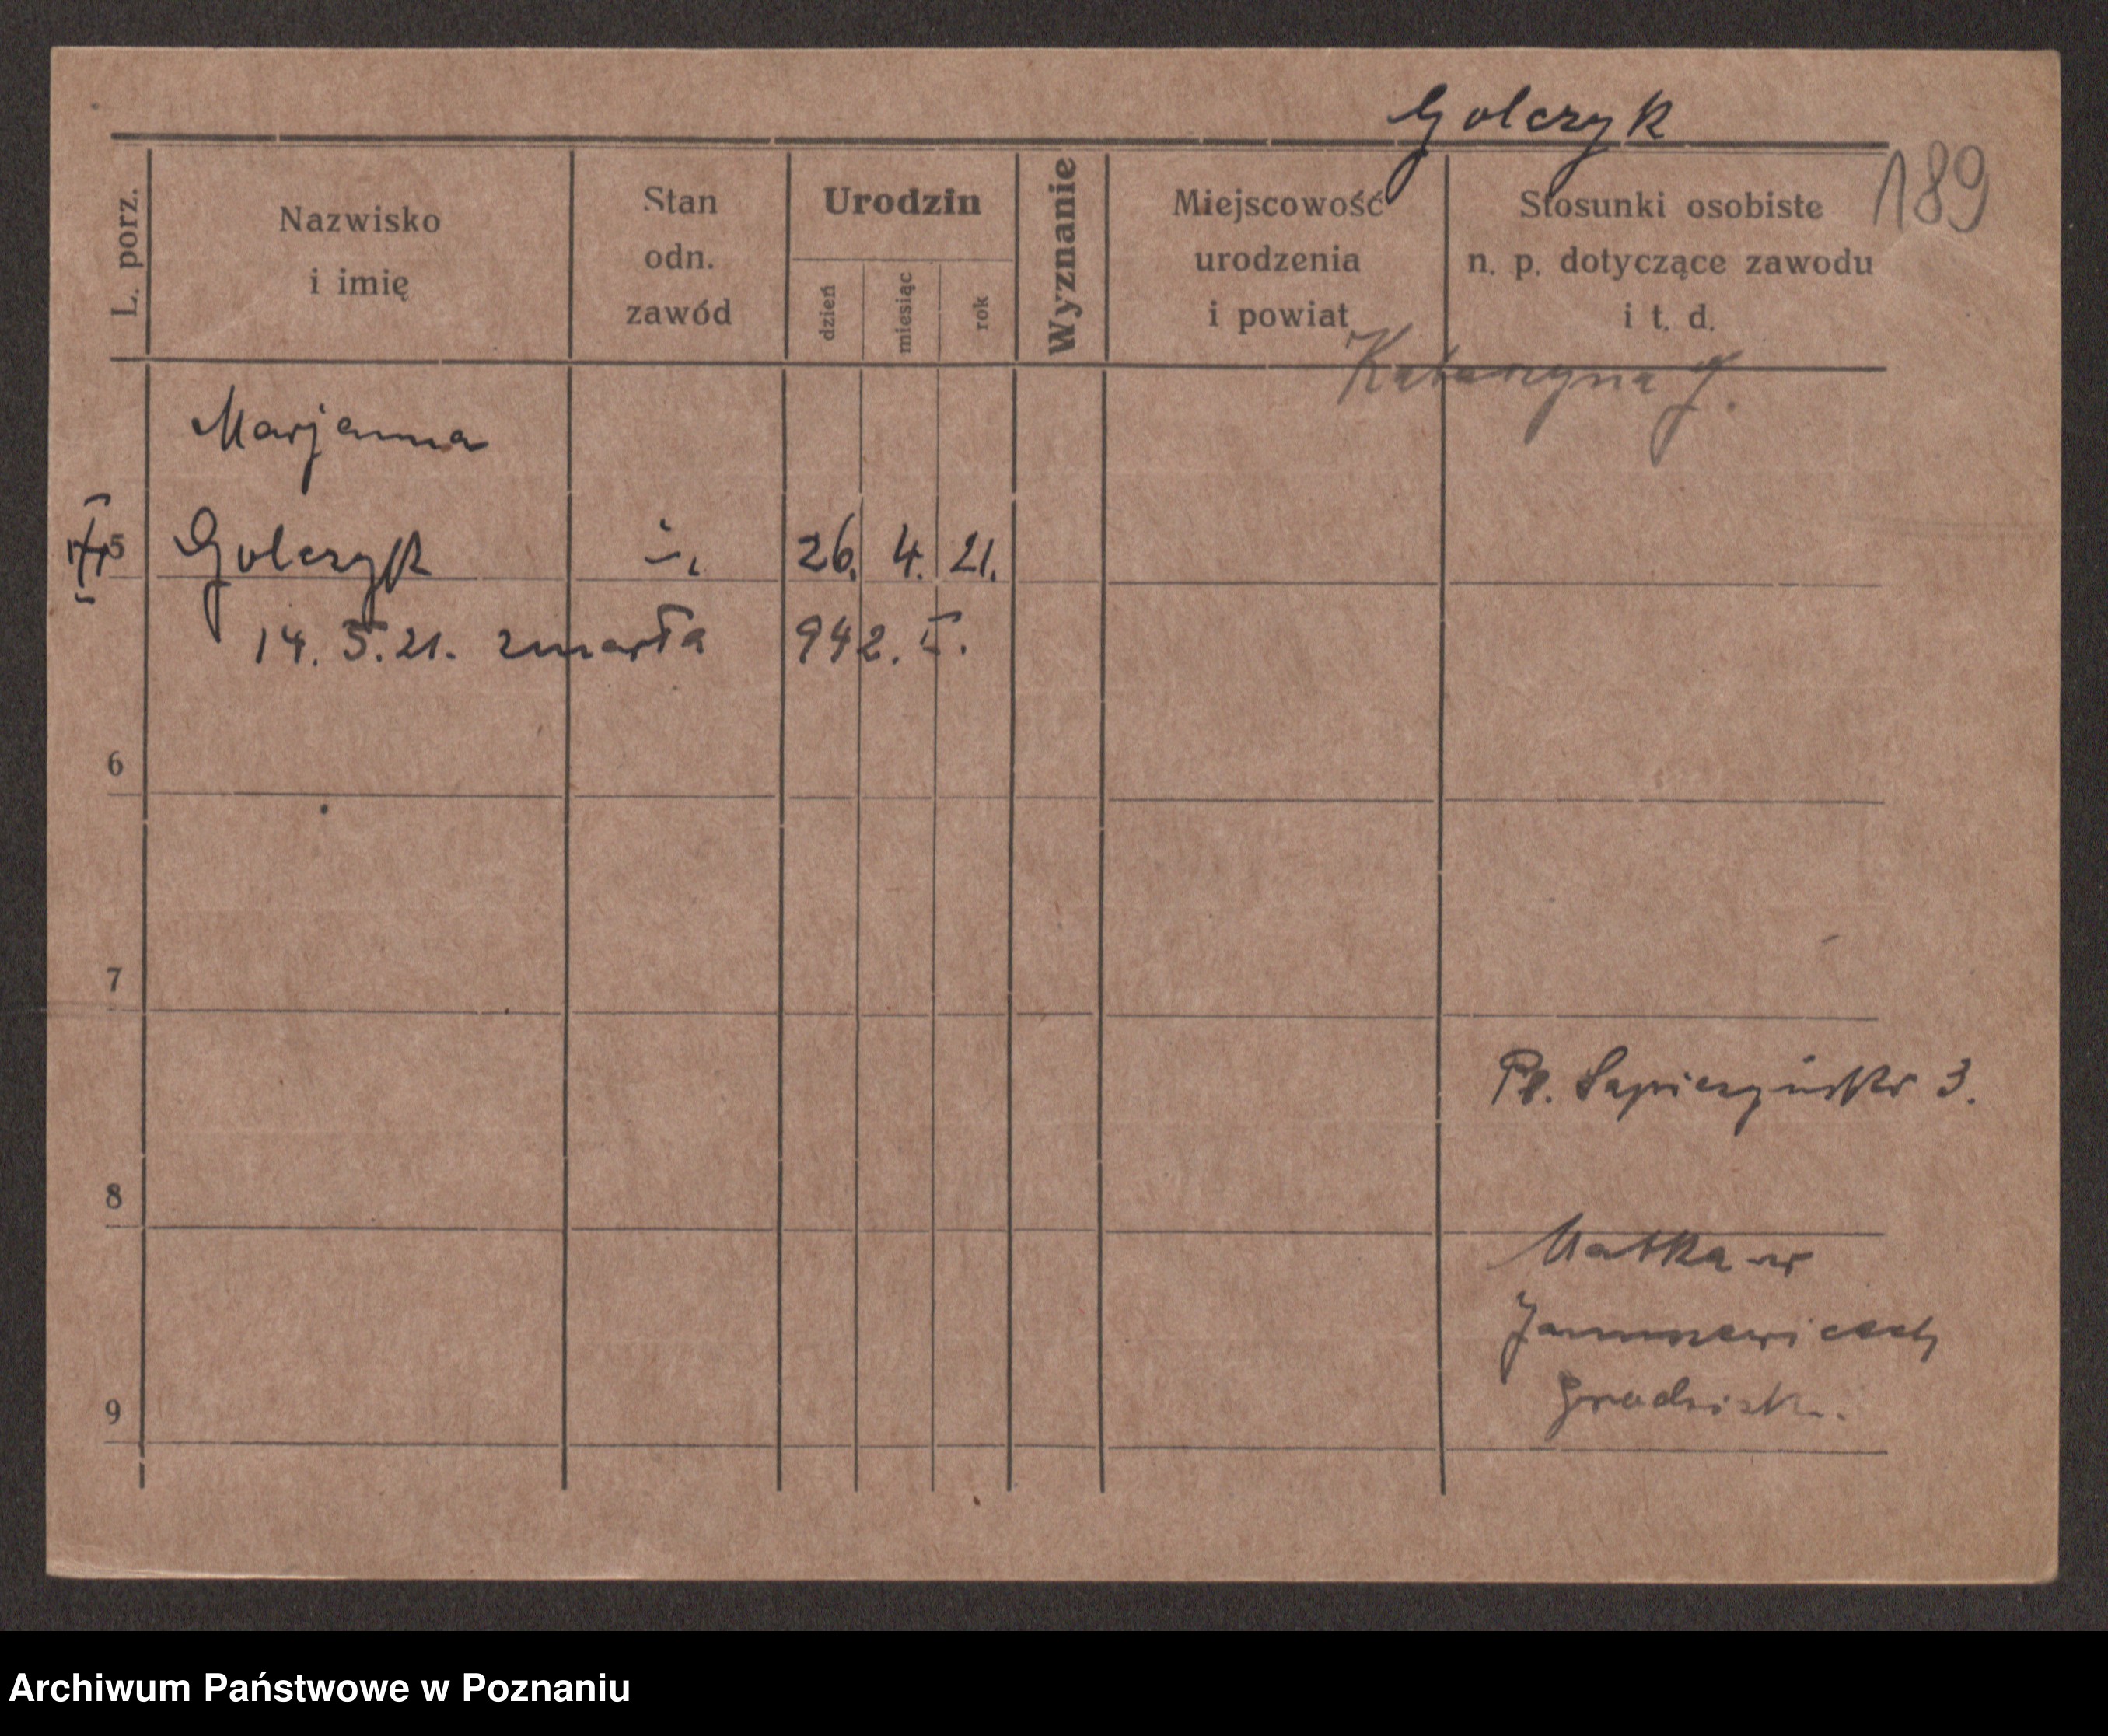 Golczyk
189
L. porz.
Nazwisko
i imię
Stan
odn.
zawód
Urodzin
dzień
miesiąc
rok
Wyznanie
Miejscowość
urodzenia
i powiat
Stosunki osobiste
n. p. dotyczące zawodu
i t. d.
Katarzyna G.
Marjanna
5 Golczyk 26. 4. 21.
14. 5. 21. zmarła 942. I.
6
7
Pl. Sapieżyński 3.
8
Matka w
9
Archiwum Państwowe w Poznaniu